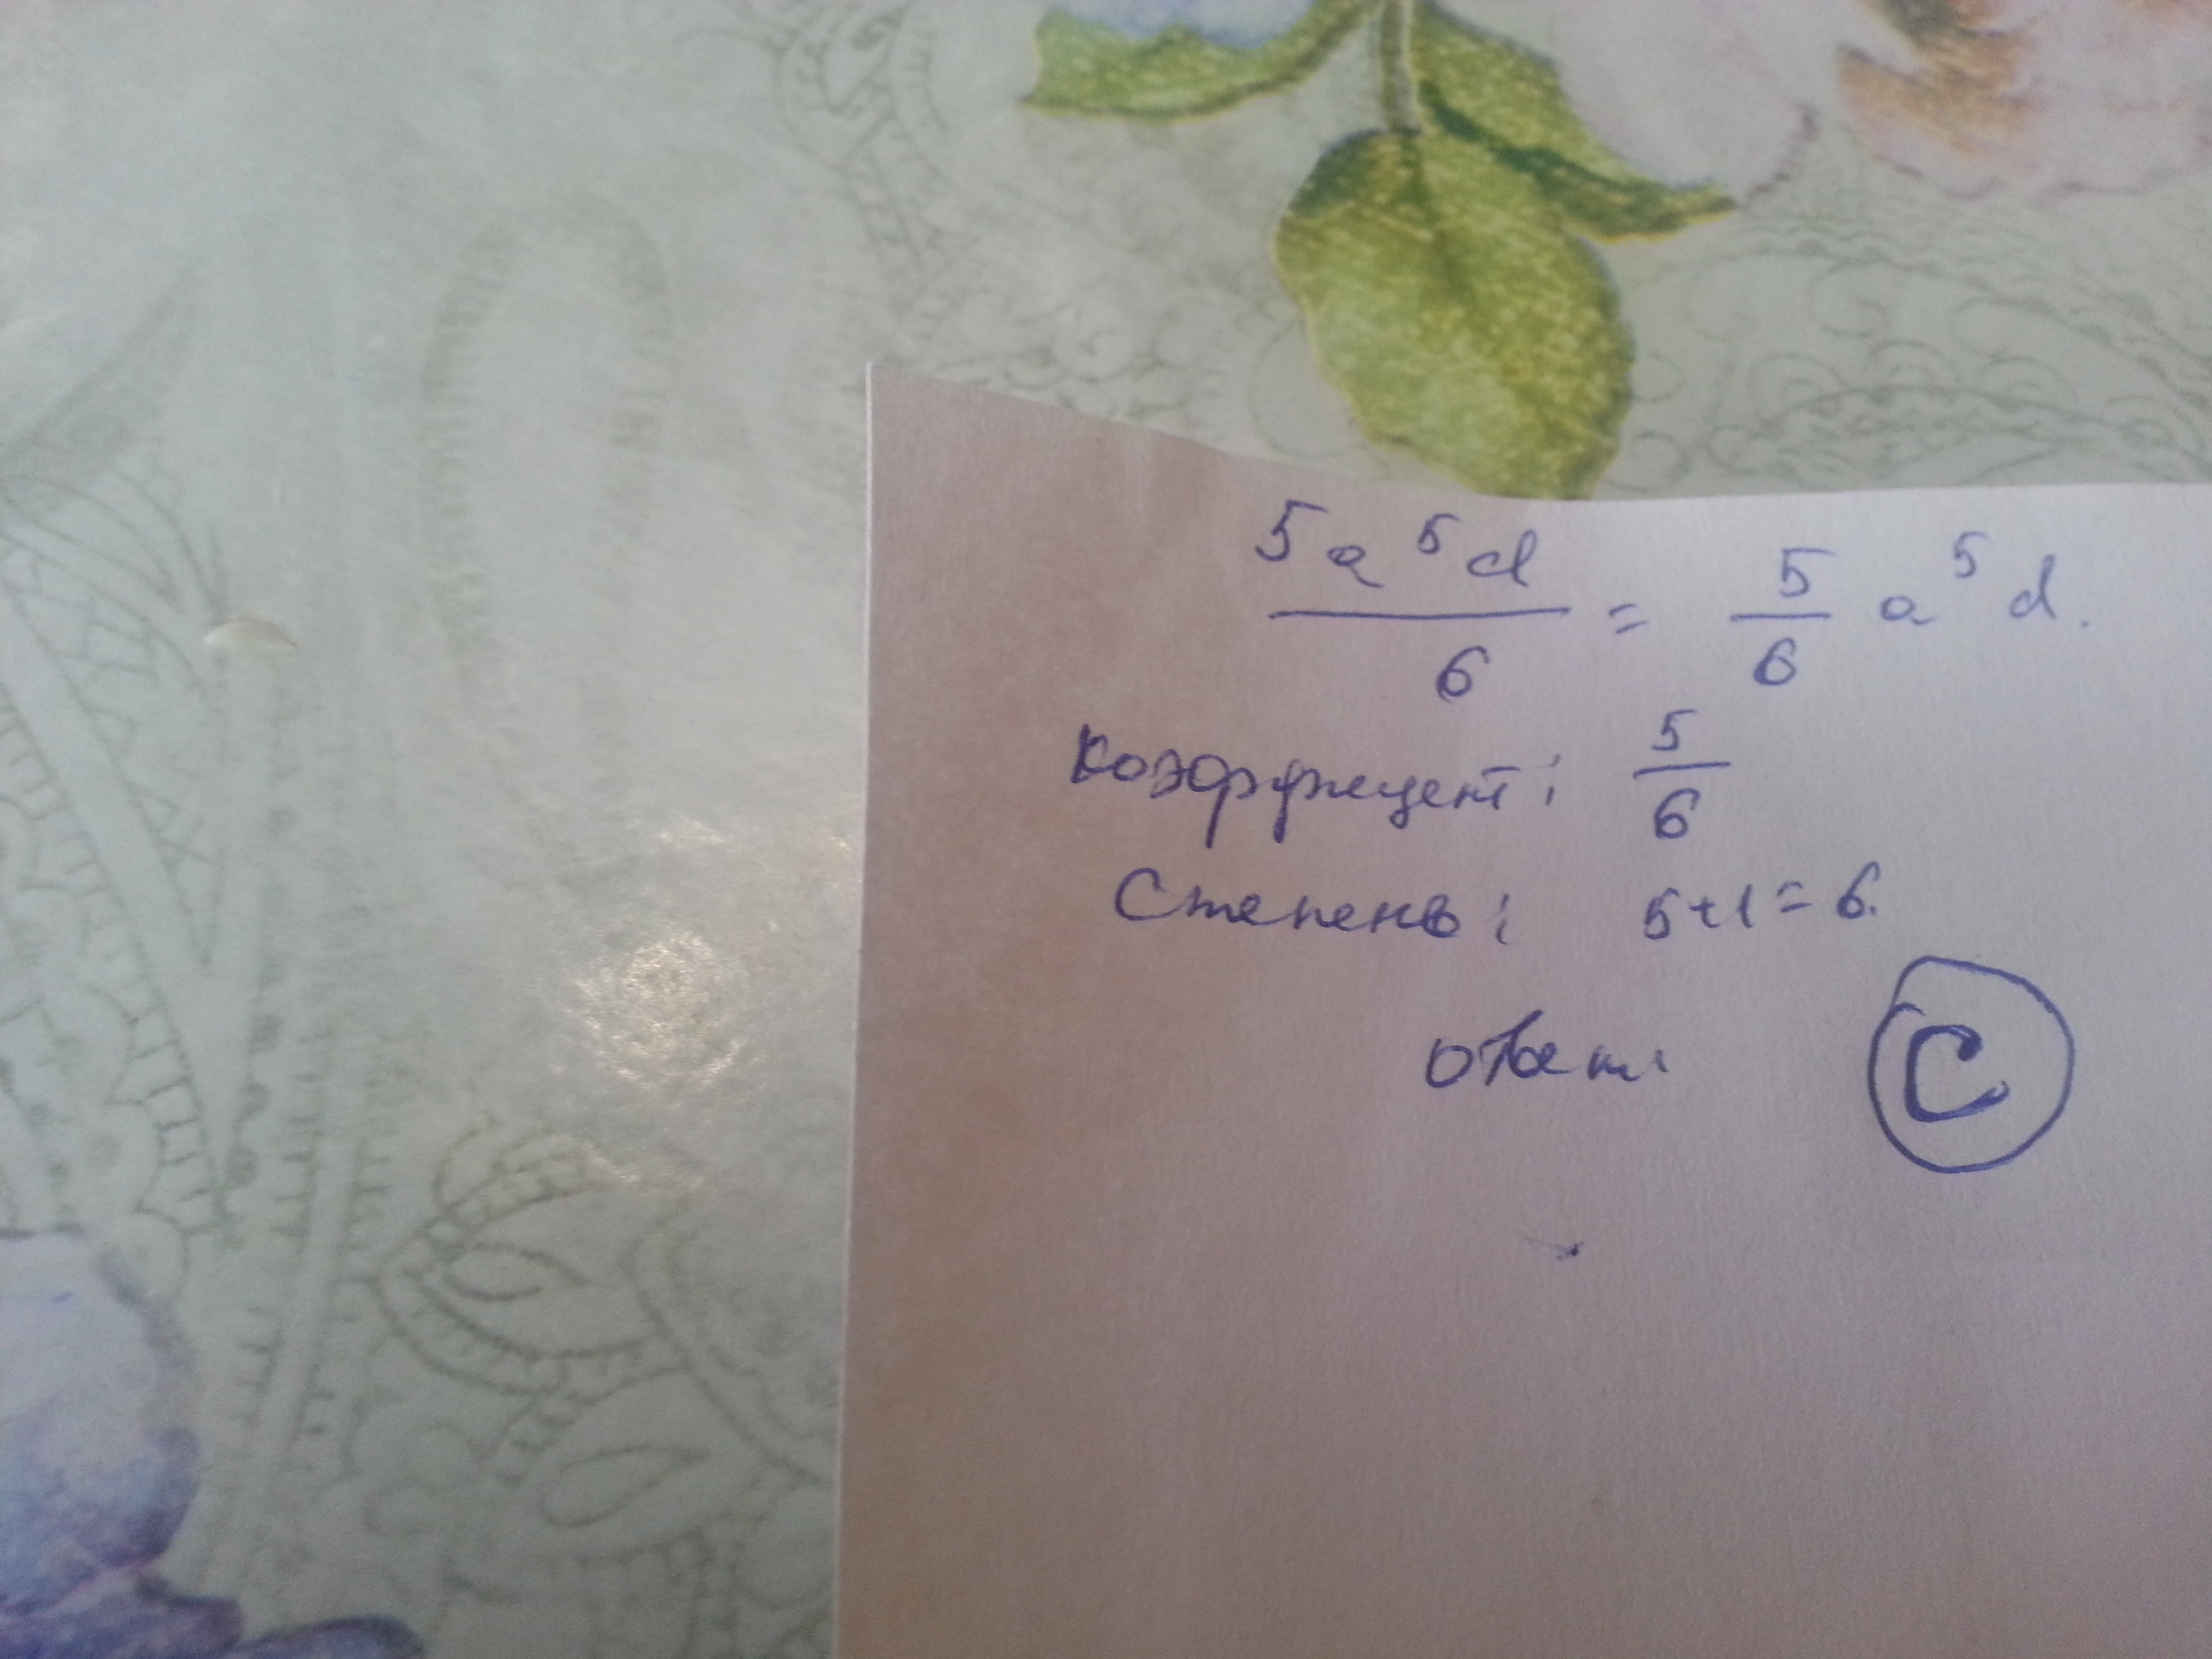 5a⁵d/6 = 5/6 a⁵d.
Коэффицент: 5/6
Степень: 5+1=6.
Ответ: C